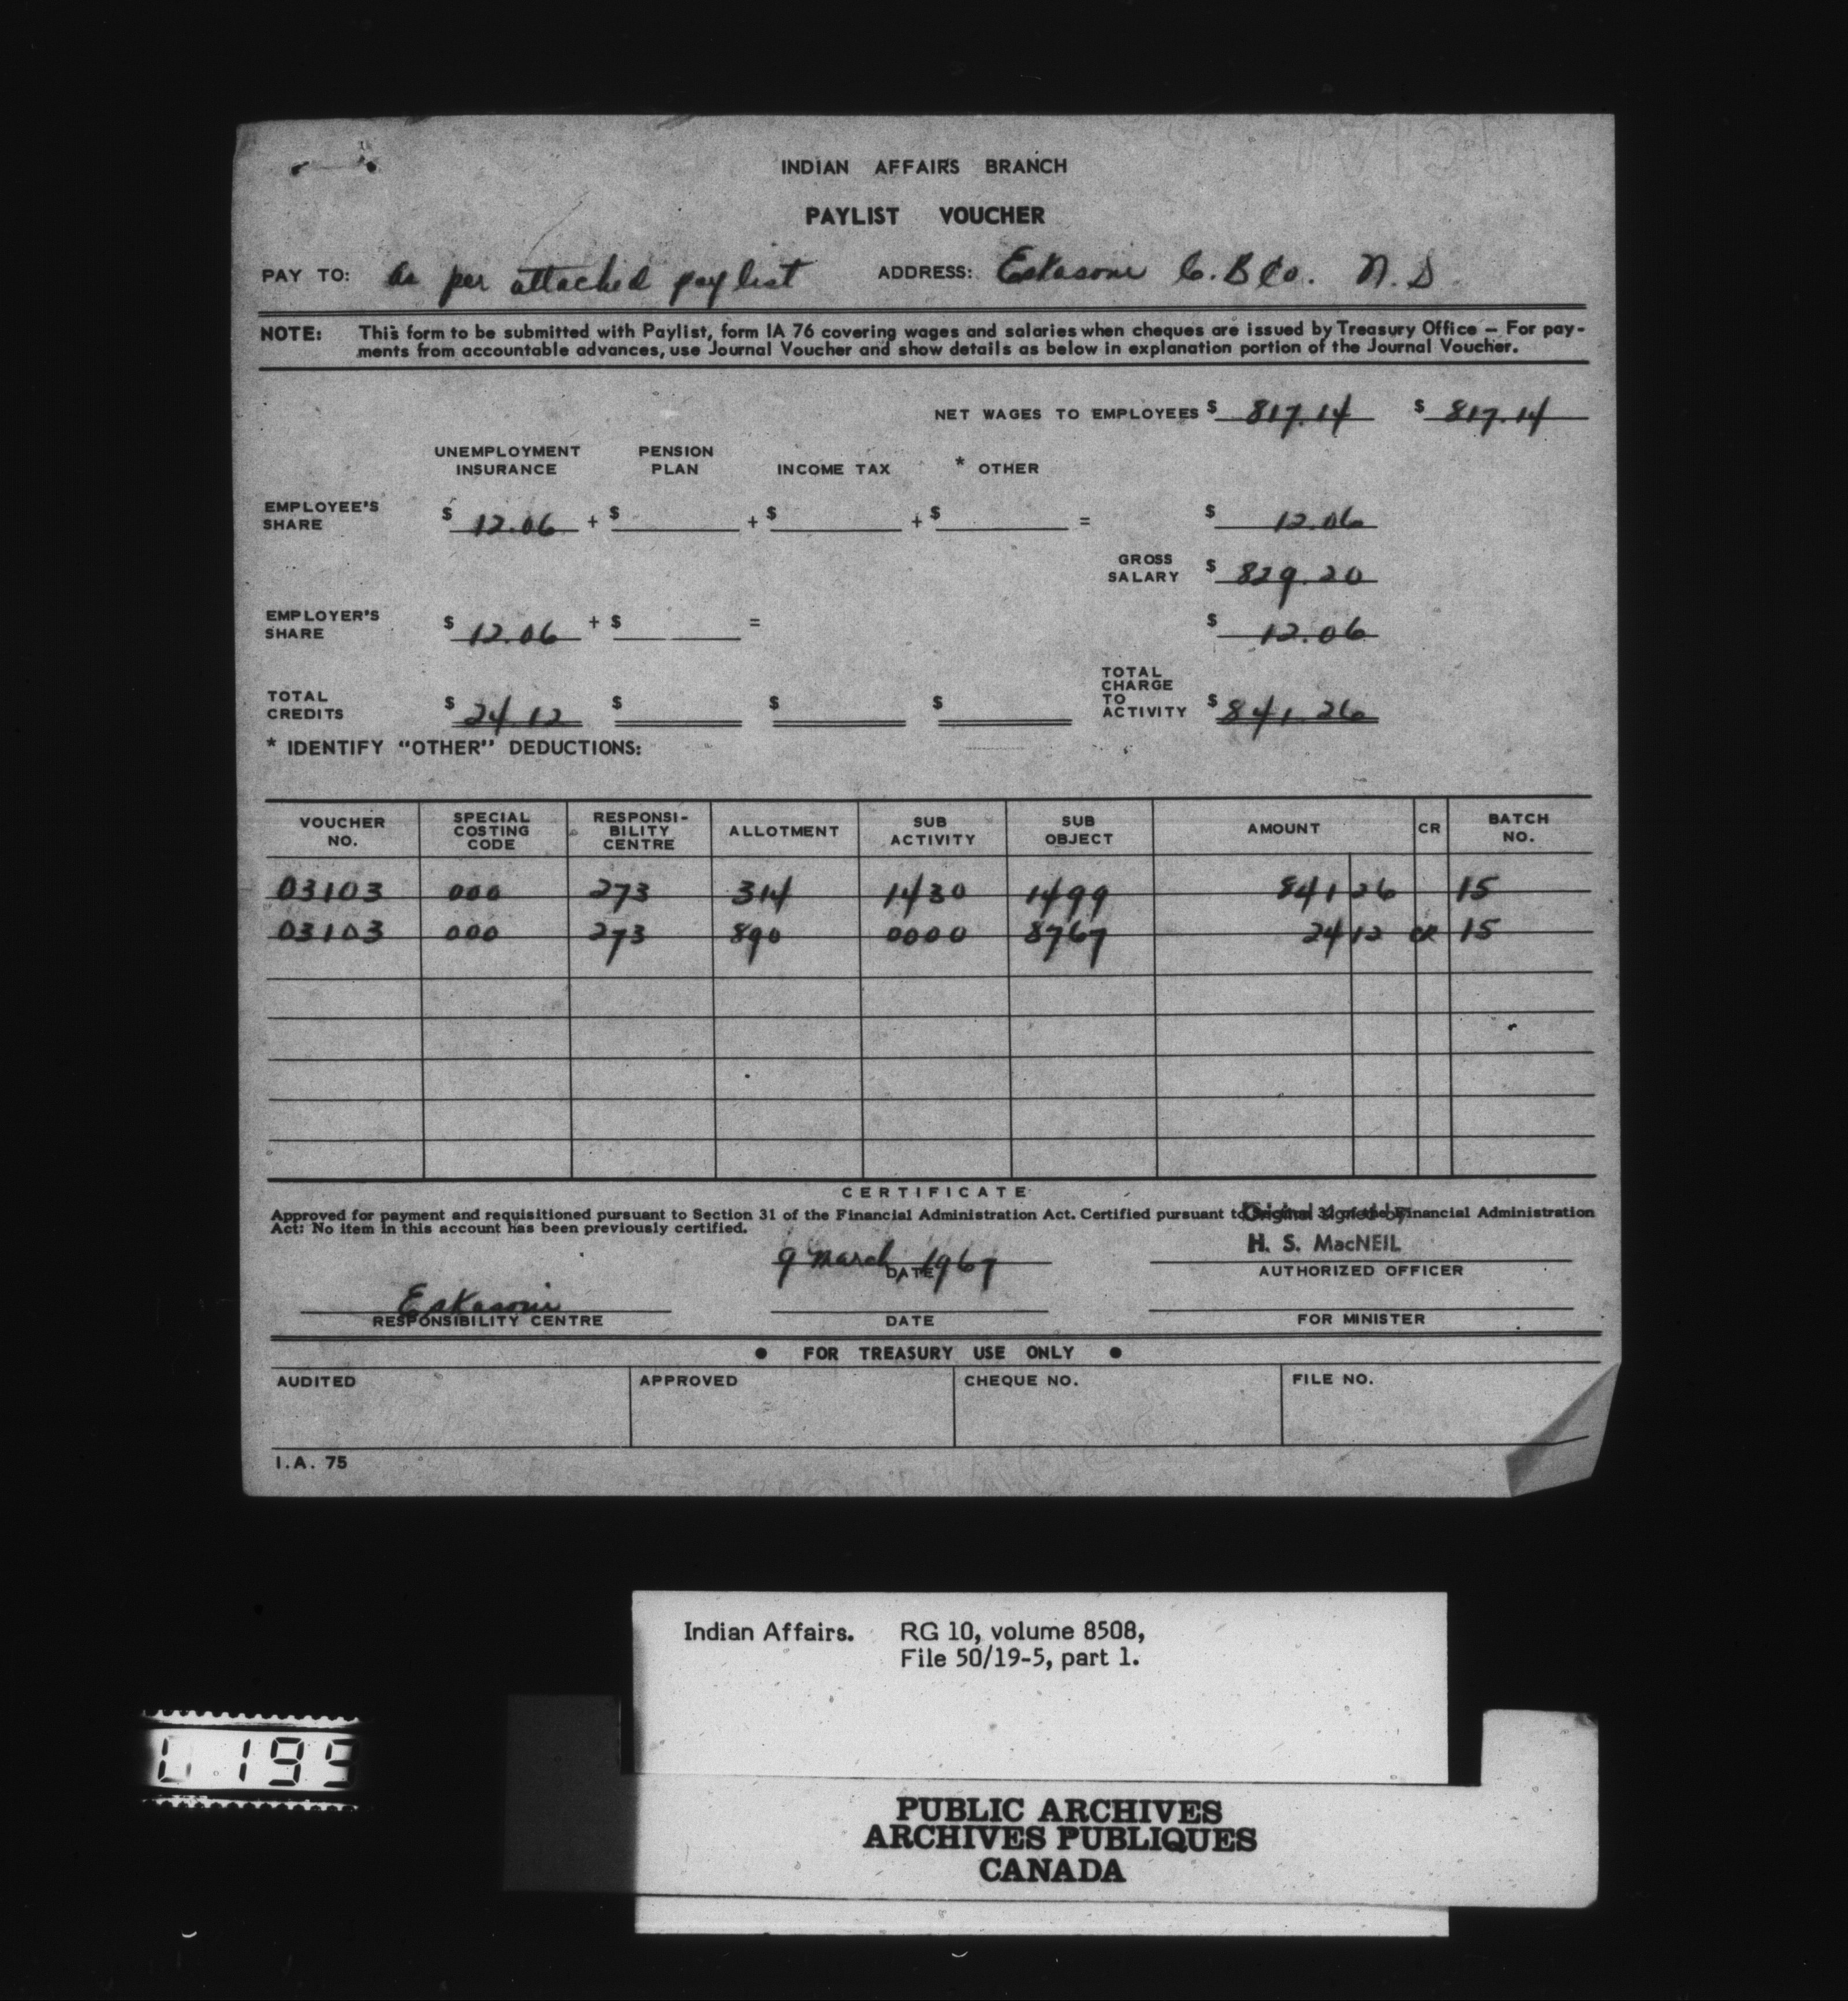 INDIAN AFFAIRS BRANCH
PAYLIST VOUCHER
PAY TO: As per attached paylist ADDRESS: Eskasoni C.B Co. N.S
NOTE: This form to be submitted with Paylist, form IA 76 covering wages and salaries when cheques are issued by Treasury Office — For pay-
ments from accountable advances, use Journal Voucher and show details as below in explanation portion of the Journal Voucher.
NET WAGES TO EMPLOYEES $ 817.14 $ 817.14
UNEMPLOYMENT INSURANCE PENSION PLAN INCOME TAX * OTHER
EMPLOYEE'S SHARE $ 12.06 + $ + $ + $ = $ 12.06
GROSS SALARY $ 829.20
EMPLOYER'S SHARE $ 12.06 + $ = $ 12.06
TOTAL CREDITS $ 24.12 $ $ $ TOTAL CHARGE TO ACTIVITY $ 841.26
* IDENTIFY "OTHER" DEDUCTIONS:
VOUCHER NO. SPECIAL COSTING CODE RESPONSI-BILITY CENTRE ALLOTMENT SUB ACTIVITY SUB OBJECT AMOUNT CR BATCH NO.
03103 000 273 314 1430 1499 841 26 15
03103 000 273 890 0000 8767 24 12 CR 15
CERTIFICATE
Approved for payment and requisitioned pursuant to Section 31 of the Financial Administration Act. Certified pursuant to Financial Administration
Act: No item in this account has been previously certified.
Original signed by
H. S. MacNEIL
9 March 1967
DATE AUTHORIZED OFFICER
Eskasoni
RESPONSIBILITY CENTRE DATE FOR MINISTER
● FOR TREASURY USE ONLY ●
AUDITED APPROVED CHEQUE NO. FILE NO.
I.A. 75
Indian Affairs. RG 10, volume 8508,
File 50/19-5, part 1.
199
PUBLIC ARCHIVES
ARCHIVES PUBLIQUES
CANADA